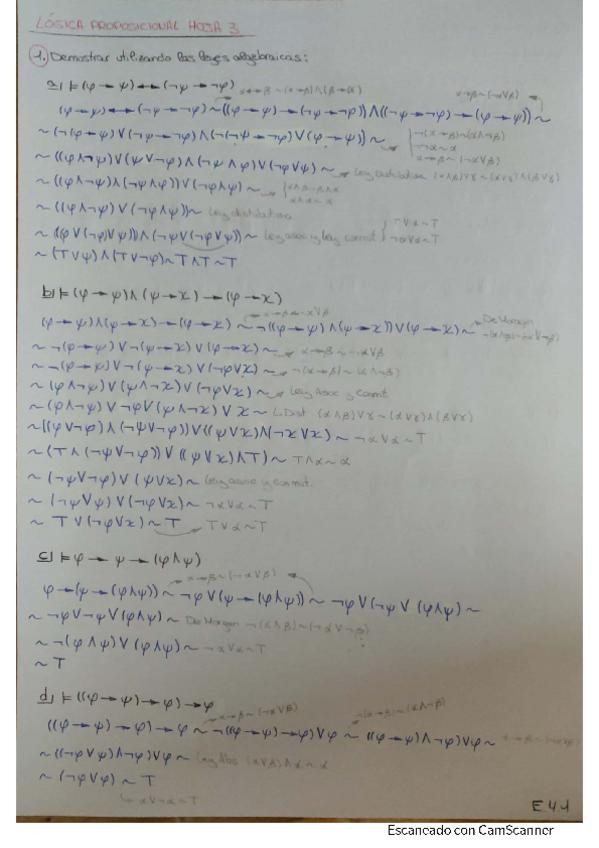 LÓGICA PROPOSICIONAL HOJA 3
1. Demostrar utilizando las leyes algebraicas:
a) ⊨ (φ → ψ) ↔ (¬ψ → ¬φ)
α↔β ~ (α→β)∧(β→α) α→β ~ (¬α∨β)
(φ → ψ) ↔ (¬ψ → ¬φ) ~ ((φ → ψ) → (¬ψ → ¬φ)) ∧ ((¬ψ → ¬φ) → (φ → ψ)) ~
~ (¬(φ → ψ) ∨ (¬ψ → ¬φ) ∧ (¬(¬ψ → ¬φ) ∨ (φ → ψ)) ~ ¬(α→β) ~ (α∧¬β)
¬¬α ~ α
α→β ~ (¬α∨β)
~ ((φ ∧ ¬ψ) ∨ (ψ ∨ ¬φ) ∧ (¬ψ ∧ φ) ∨ (¬φ ∨ ψ) ~ Ley distributiva (α∧β)∨γ ~ (α∨γ)∧(β∨γ)
~ ((φ ∧ ¬ψ) ∧ (¬ψ ∧ φ)) ∨ (¬φ ∧ ψ) ~ α∧β ~ β∧α
α∧α ~ α
~ ((φ ∧ ¬ψ) ∨ (¬φ ∨ ψ)) ~ Ley distributiva
~ ((φ ∨ (¬φ) ∨ ψ)) ∧ (¬ψ ∨ (¬φ ∨ ψ)) ~ Ley asoc y Ley conmut { T∨α ~ T
¬α∨α ~ T
~ (T ∨ ψ) ∧ (T ∨ ¬φ) ~ T ∧ T ~ T
b) ⊨ (φ → ψ) ∧ (ψ → χ) → (φ → χ)
α→β ~ ¬α∨β
(φ → ψ) ∧ (ψ → χ) → (φ → χ) ~ ¬((φ → ψ) ∧ (ψ → χ)) ∨ (φ → χ) ~ De Morgan
¬(α∧β) ~ (¬α∨¬β)
~ ¬(φ → ψ) ∨ ¬(ψ → χ) ∨ (φ → χ) ~ α→β ~ ¬α∨β
~ ¬(φ → ψ) ∨ ¬(ψ → χ) ∨ (¬φ ∨ χ) ~ ¬(α→β) ~ (α∧¬β)
~ (φ ∧ ¬ψ) ∨ (ψ ∧ ¬χ) ∨ (¬φ ∨ χ) ~ Ley Asoc y conmut
~ (φ ∧ ¬ψ) ∨ ¬φ ∨ (ψ ∧ ¬χ) ∨ χ ~ L.Dist (α∧β)∨γ ~ (α∨γ)∧(β∨γ)
~ ((φ ∨ ¬φ) ∧ (¬ψ ∨ ¬φ)) ∨ ((ψ ∨ χ) ∧ (¬χ ∨ χ) ~ ¬α∨α ~ T
~ (T ∧ (¬ψ ∨ ¬φ)) ∨ ((ψ ∨ χ) ∧ T) ~ T∧α ~ α
~ (¬ψ ∨ ¬φ) ∨ (ψ ∨ χ) ~ Ley asoc y conmut.
~ (¬ψ ∨ ψ) ∨ (¬φ ∨ χ) ~ ¬α∨α ~ T
~ T ∨ (¬φ ∨ χ) ~ T T∨α ~ T
c) ⊨ φ → ψ → (φ ∧ ψ)
α→β ~ (¬α∨β)
φ → (ψ → (φ ∧ ψ)) ~ ¬φ ∨ (ψ → (φ ∧ ψ)) ~ ¬φ ∨ (¬ψ ∨ (φ ∧ ψ) ~
~ ¬φ ∨ ¬ψ ∨ (φ ∧ ψ) ~ De Morgan ¬(α∧β) ~ (¬α∨¬β)
~ ¬(φ ∧ ψ) ∨ (φ ∧ ψ) ~ ¬α∨α ~ T
~ T
d) ⊨ ((φ → ψ) → φ) → φ
α→β ~ (¬α∨β) ¬(α→β) ~ (α∧¬β)
((φ → ψ) → φ) → φ ~ ¬((φ → ψ) → φ) ∨ φ ~ ((φ → ψ) ∧ ¬φ) ∨ φ ~ α→β ~ (¬α∨β)
~ ((¬φ ∨ ψ) ∧ ¬φ) ∨ φ ~ Ley Abs (α∨β)∧α ~ α
~ (¬φ ∨ φ) ~ T
α∨¬α ~ T
E41
Escaneado con CamScanner